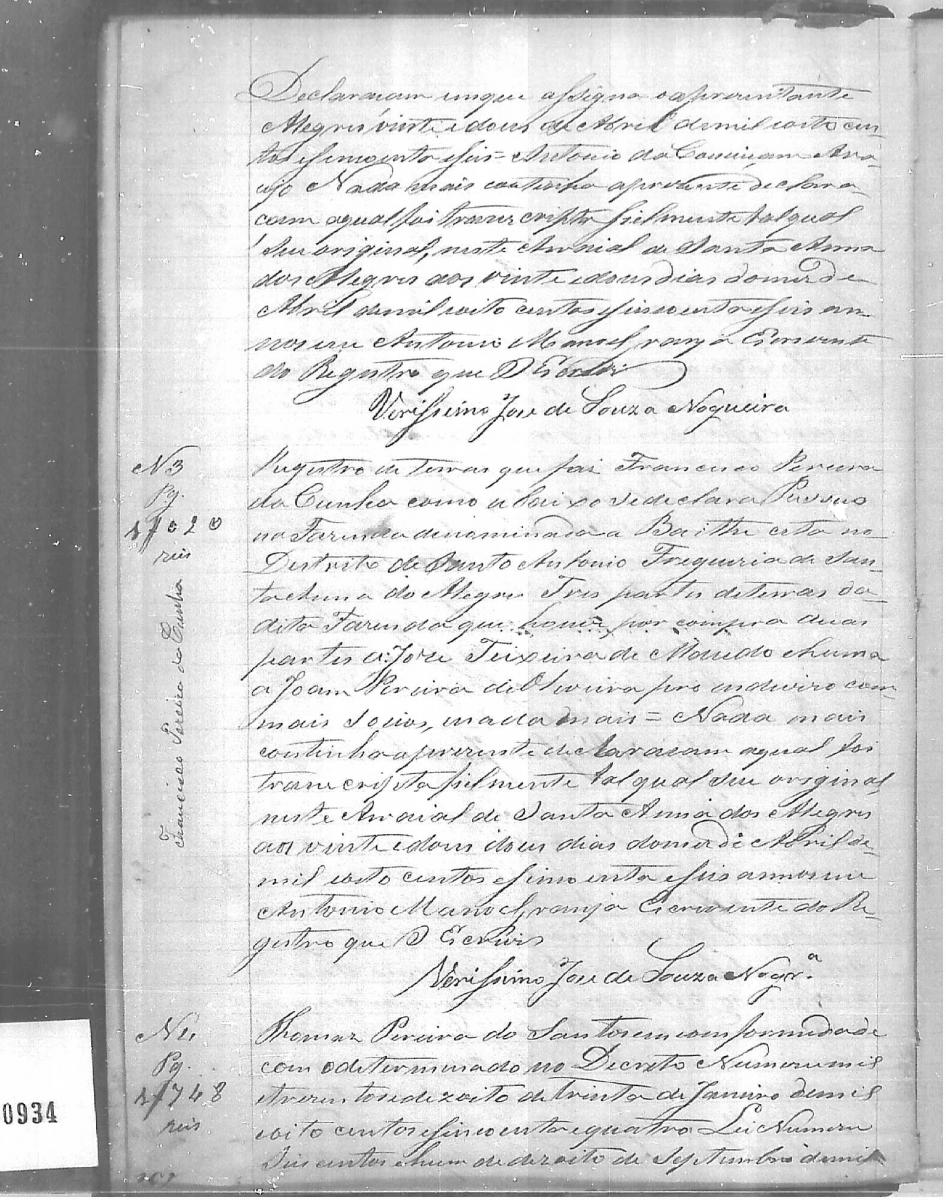 Declaracam em que assigna o aprezentante
Alegres vinte e dous de Abril de mil oito cen-
tos e sincoenta e seis = Antonio da Conceiçam Ara-
ujo Nada mais continha aprezente declara
cam aqual foi transcripta fielmente tal qual
seu original, neste Arraial de Santa Anna
dos Alegres aos vinte e dous dias do mez de
Abril de mil oito centos e sincoenta e seis an-
nos eu Antonio Manoel Escrevente
do Registro que o Escrevi
Verissimo Jose de Souza Nogueira
N 3
Pg.
1020
reis
Francisco Pereira da Cunha
Registro de terras que faz Francisco Pereira
da Cunha como abaixo se declara Pussue
na Fazenda denaminada a cita no
Destrito de Santo Antonio Freguezia de San-
ta Anna do Alegre Tres partes de terras da
dita Fazenda que houve por compra duas
partes a Joze Teixeira de Macedo e huma
a Joam Pereira de Oliveira pro indivizo com
mais socios, e nada mais = Nada mais
continha aprezente declaracam aqual foi
transcripta fielmente tal qual seu original
neste Arraial de Santa Anna dos Alegres
aos vinte e dous dous dias do mez de Abril de
mil oito centos e sincoenta e seis annos eu
Antonio Manoel Escrevente do Re-
gistro que o Escrevis
Verissimo Jose de Souza Nogr.ª
N 4.
Pg.
1748
reis
Thomaz Pereira do Santos em comformidade
com o determinado no Decreto Numero mil
e trezentos e dezoito de trinta de Janeiro de mil
oito centos e sincoenta e quatro Lei Numero
Seis centos e hum de dezoito de Septembro de mil
0934